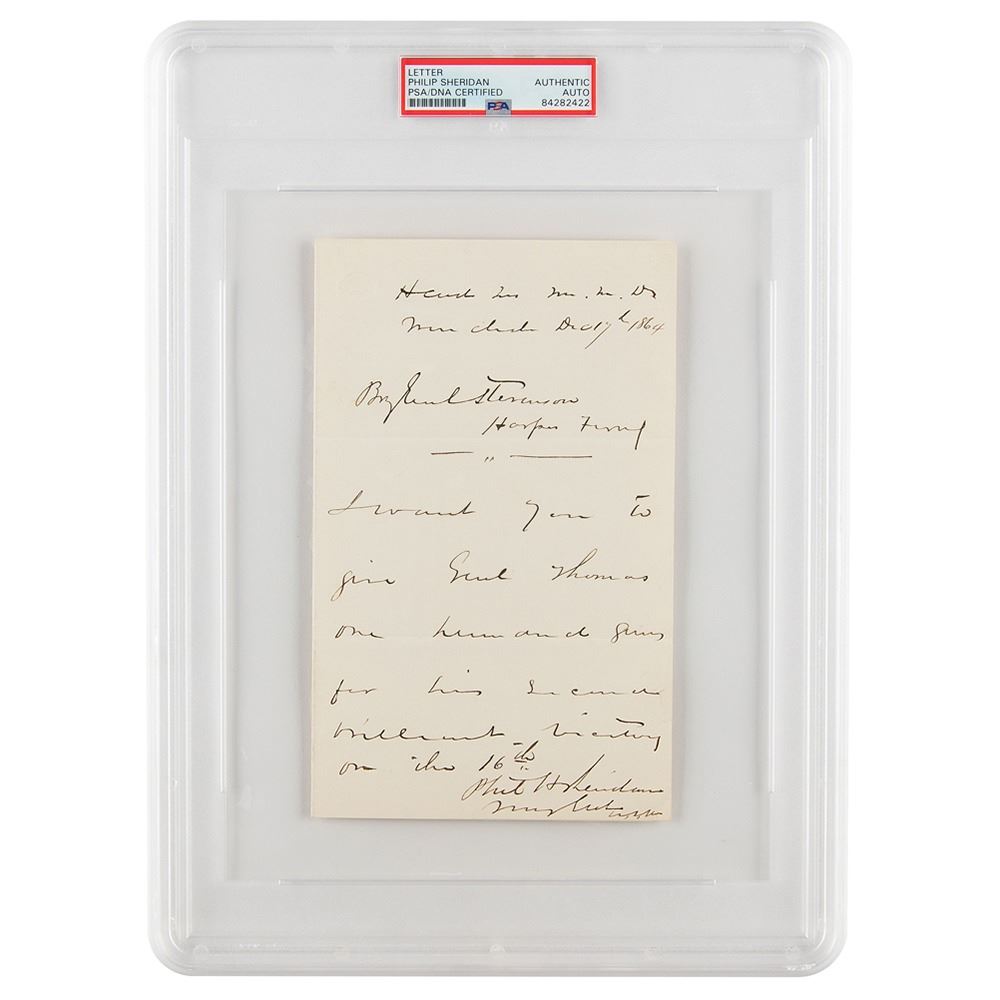 LETTER
PHILIP SHERIDAN
PSA/DNA CERTIFIED
AUTHENTIC
AUTO
84282422
PSA
Head Qrs M. M. Dv
Winchester Dec 17th 1864
Brig Genl Stevenson
Harpers Ferry
I want you to
give Genl Thomas
one hundred guns
for his second
brilliant victory
on the 16th
Phil H Sheridan
Maj Genl